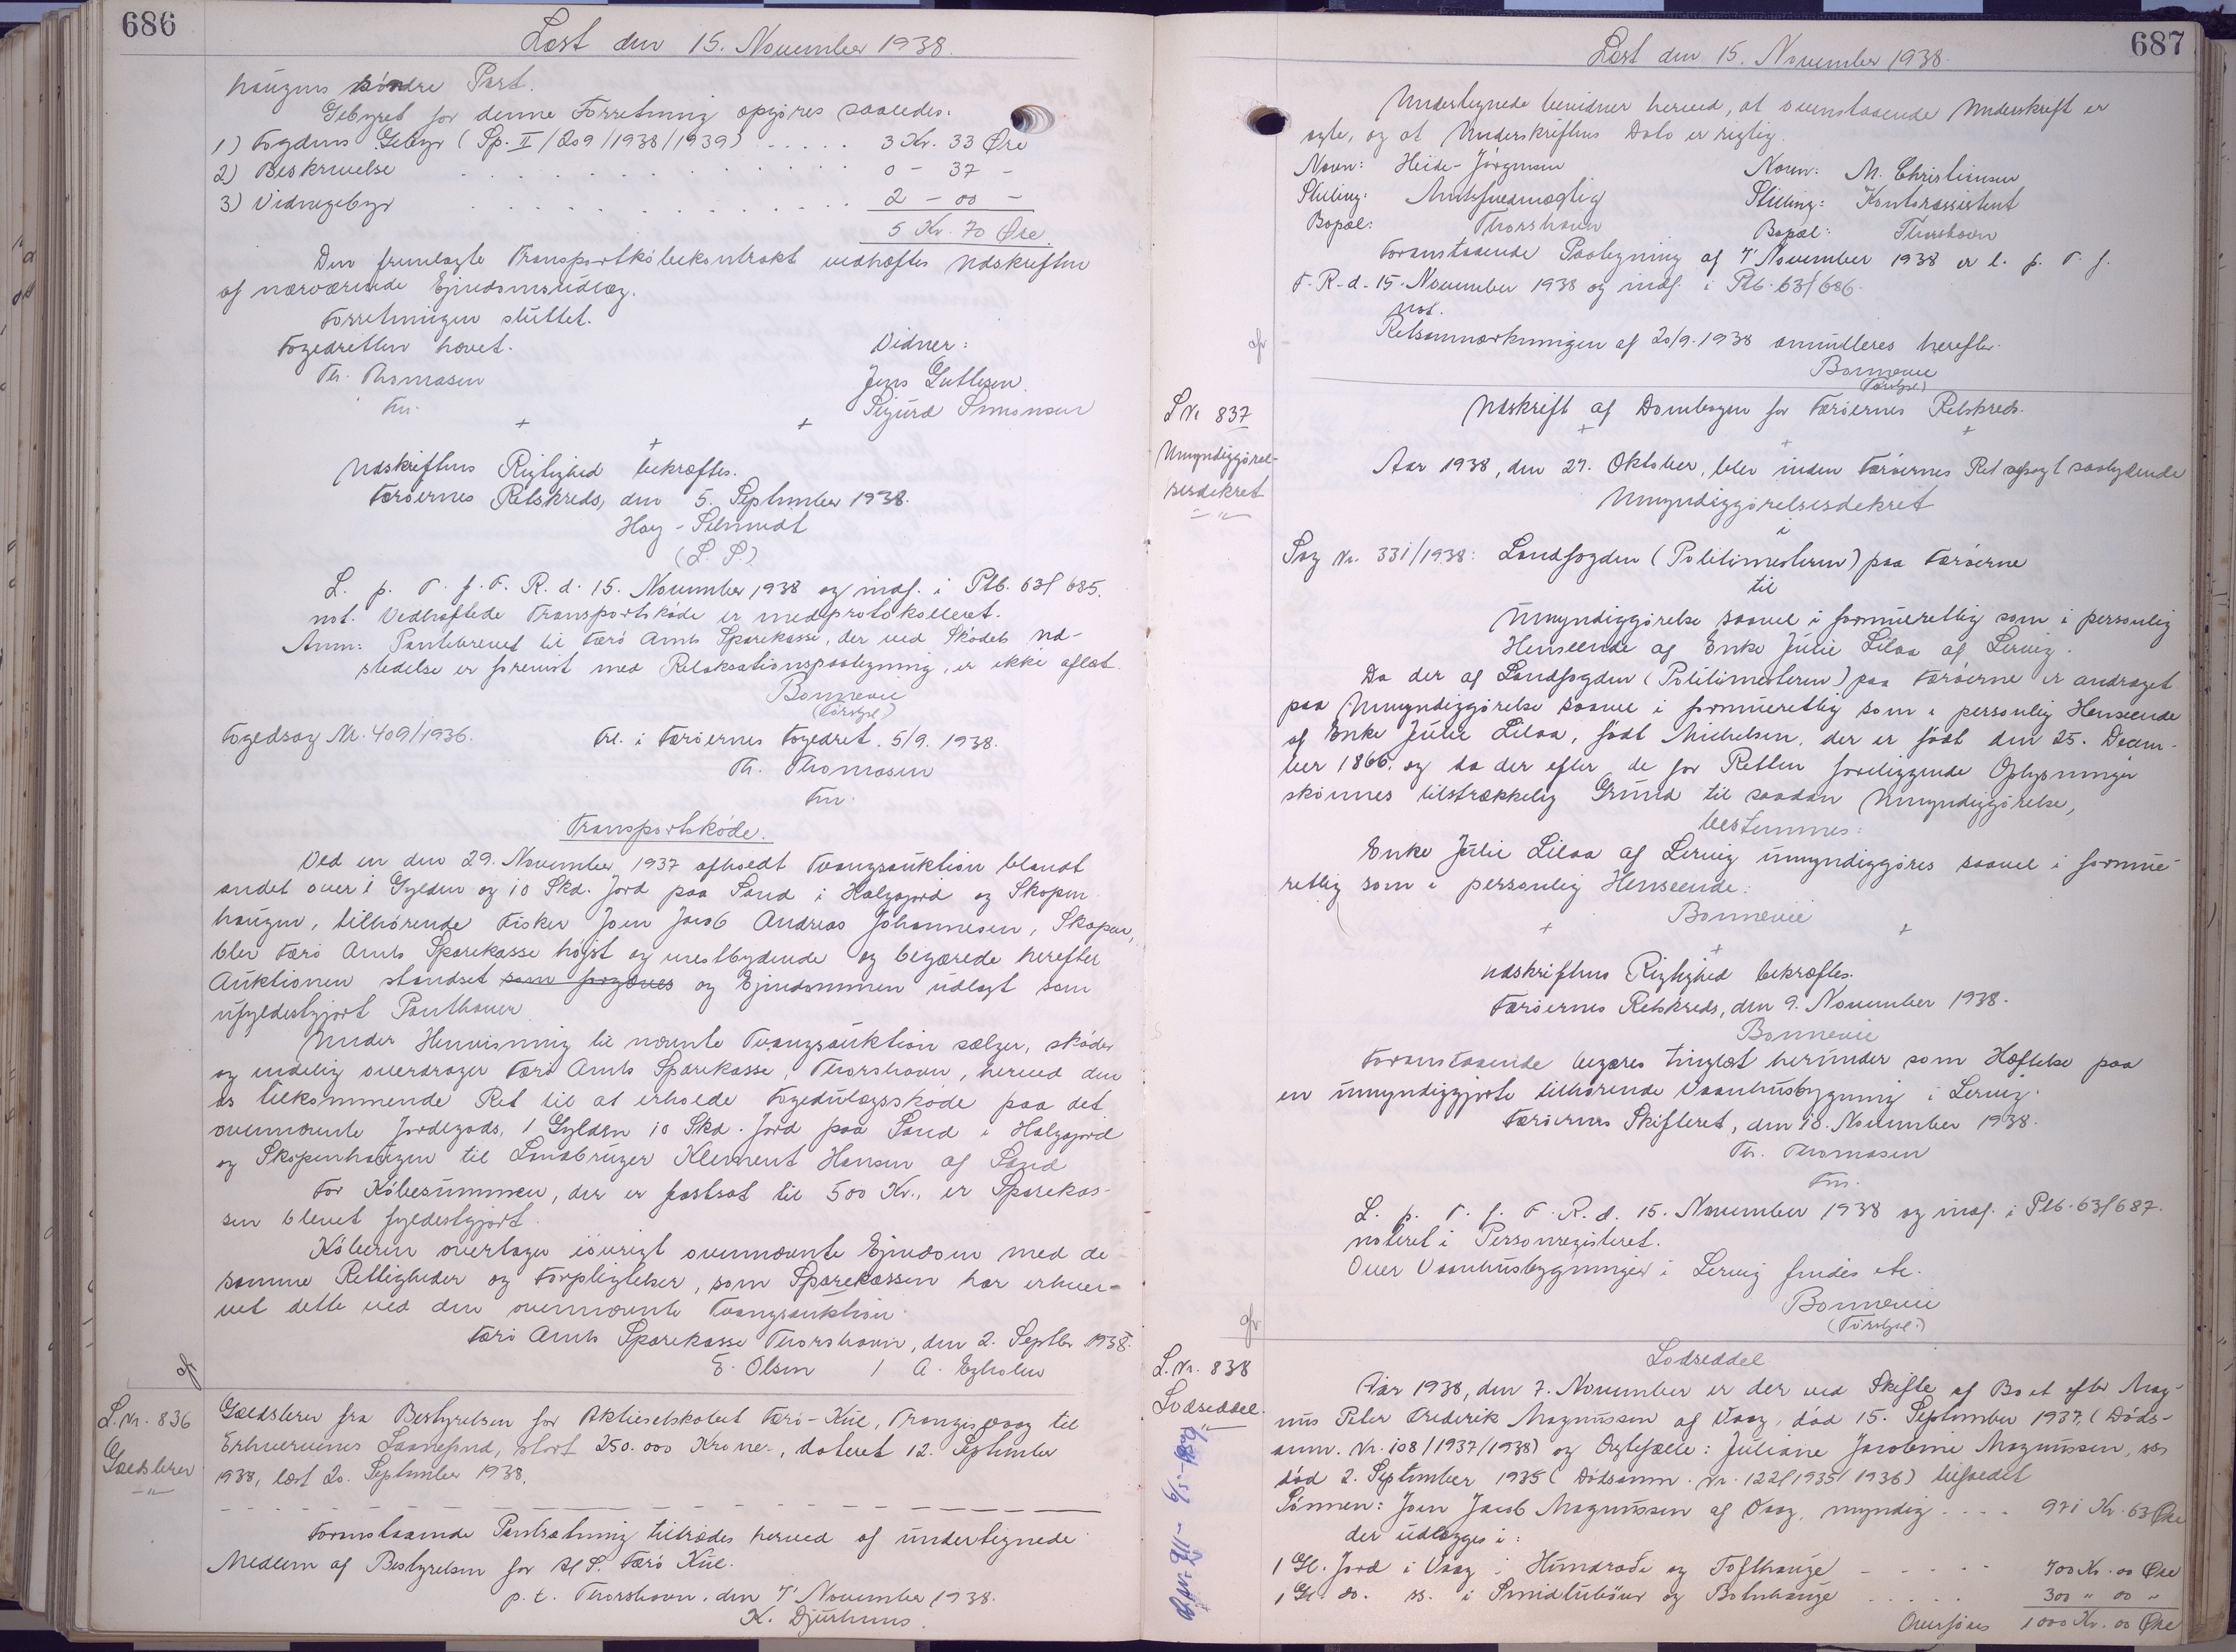 686
Læst den 15. November 1938.
haugens söndre Part.
Gebyret for denne Forretning opgöres saaledes:
1) Fogdens Gebyr (Sp. II/209/1938/1939) . . . . . 3 Kr. 33 Öre
2) Beskrivelse . . . . . . 0 - 37 -
3) Vidnegebyr . . . . . . 2 - 00 -
5 Kr. 70 Öre.
Den fremlagte Transportköbekontrakt vedhæftes Udskriften
af nærværende Ejendomsudlæg.
Forretningen sluttet.
Fogedretten hævet.
Vidner:
Th. Thomasen
Jens Guttesen.
Fm.
Sigurd Simonsen
+ + +
Udskriftens Rigtighed bekræftes.
Færöernes Retskreds, den 5. September 1938.
Høy-Schmidt
(L. S.)
L. p. T. f. F. R. d. 15. November 1938 og indf. i Ptb. 63f 685.
not. Vedhæftede Transportsköde er medprotokolleret.
Anm: Pantebrevet til Færö Amts Sparekasse, der ved Sködets Ud-
stedelse er forevist med Relaksationspaategning, er ikke aflæst.
Bonnevie
(Færötgl.)
Fogedsag Nr. 409/1936.
Frl. i Færöernes Fogedret. 5/9. 1938.
Th. Thomasen
Fm.
Transportsköde.
Ved en den 29. November 1937 afholdt Tvangsauktion blandt
andet over 1 Gylden og 10 Skd. Jord paa Sand i Halgagord og Skopen
haugen, tilhörende Fisker Joen Jacob Andreas Johannesen, Skopen,
blev Færö Amts Sparekasse höjst og mestbydende og begærede herefter
Auktionen standset som forgæves og Ejendommen udlagt som
ufyldestgjort Panthaver.
Under Henvisning til nævnte Tvangsauktion sælger, sköder
og endelig overdrager Færö Amts Sparekasse, Thorshavn, herved den
os tilkommende Ret til at erholde Fogedudlægsskøde paa det
ovennævnte Jordegods, 1 Gylden 10 Skd. Jord paa Sand i Halgagord
og Skopenhaugen til Landbruger Klement Hansen af Sand
For Köbesummen, der er fastsat til 500 Kr., er Sparekas-
sen blevet fyldestgjort.
Köberen overtager iövrigt ovennævnte Ejendom med de
samme Rettigheder og Forpligtelser, som Sparekassen har erhver-
vet dette ved den ovennævnte Tvangsauktion.
Færö Amts Sparekasse Thorshavn, den 2. Septbr 1938.
E. Olsen / A. Egholm
L. Nr. 836
Gældsbrev
Gældsbrev fra Bestyrelsen for Aktieselskabet Færö-Kul, Trangisvaag til
Erhvervenes Laanefond, stort 250.000 Kroner, dateret 12. September
1938, læst 20. September 1938.
Foranstaaende Pantsætning tiltrædes herved af undertegnede
Medlem af Bestyrelsen for A/S. Færö Kul.
p. t. Thorshavn, den 7' November 1938.
K. Djurhuus.
687
Læst den 15. November 1938.
Undertegnede bevidner herved, at ovenstaaende Underskrift er
ægte, og at Underskriftens Dato er rigtig.
Navn: Heide-Jörgensen
Navn: M. Christiansen
Stilling: Amtsfuldmægtig
Stilling: Kontorassistent
Bopæl: Thorshavn
Bopæl: Thorshavn
Foranstaaende Paategning af 7' November 1938 er l. p. T. f.
F. R. d. 15. November 1938 og indf. i Ptb. 63f 686.
not.
Retsanmærkningen af 20/9. 1938 annulleres herefter.
Bonnevie
(Færötgl.)
L Nr 837
Umyndiggörel-
sesdekret
Udskrift af Dombogen for Færöernes Retskreds.
+ + +
Aar 1938, den 27. Oktober, blev inden Færöernes Ret afsagt saalydende
Umyndiggörelsesdekret
i
Sag Nr. 331/1938: Landfogden (Politimesteren) paa Færöerne
til
Umyndiggörelse saavel i formueretlig som i personlig
Henseende af Enke Julie Lilaa af Lervig.
Da der af Landfogden (Politimesteren) paa Færöerne er andraget
paa Umyndiggörelse saavel i formueretlig som i personlig Henseende
af Enke Julie Lilaa, födt Michelsen, der er födt den 25. Decem-
ber 1866, og da der efter de for Retten foreliggende Oplysninger
skönnes tilstrækkelig Grund til saadan Umyndiggörelse,
bestemmes:
Enke Julie Lilaa af Lervig umyndiggöres saavel i formue-
retlig som i personlig Henseende.
Bonnevie
+ + +
Udskriftens Rigtighed bekræftes.
Færöernes Retskreds, den 9. November 1938.
Bonnevie
Foranstaaende begæres tinglæst herunder som Hæftelse paa
en umyndiggjorte tilhörende Vaanhusbygning i Lervig.
Færöernes Skifteret, den 10. November 1938.
Th. Thomasen
Fm.
L. p. T. f. F. R. d. 15. November 1938 og indf. i Ptb. 63f 687.
noteret i Personregisteret.
Over Vaanhusbygninger i Lervig findes etc.
Bonnevie
(Færötgl.)
L. Nr. 838
Lodseddel.
Lodseddel
Aar 1938, den 7. November er der ved Skifte af Boet efter Mag-
nus Peter Frederik Magnussen af Vaag, död 15. September 1937, (Döds-
anm. Nr. 108/1937/1938) og Ægtefælle: Juliane Jacobine Magnussen, ss
död 2. September 1935 (Dödsanm. Nr. 122/1935/1936) tilfaldet
Sönnen: Joen Jacob Magnussen af Vaag, myndig . . . . 971 Kr. 63 Öre
der udlægges i:
1 Gl. Jord i Vaag i Hundrada og Tofthauge . . . . 700 Kr. 00 Öre
1 Gl. do. ss. i Smidlubour og Botnhauge . . . . . 300 " 00 "
Overföres 1000 Kr. 00 Öre